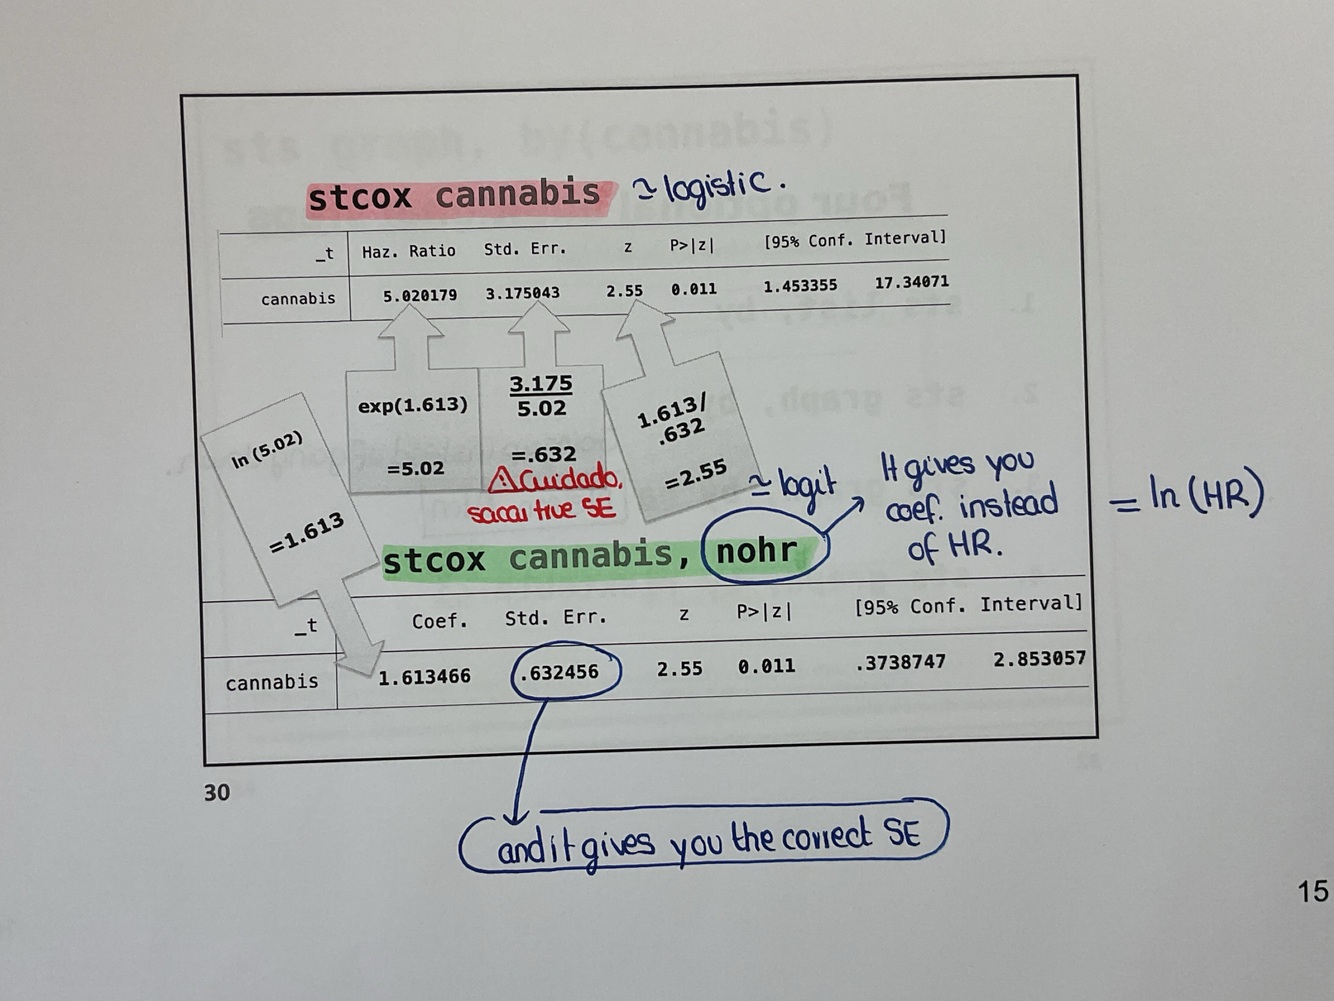 stcox cannabis ≃ logistic.
_t Haz. Ratio Std. Err. z P>|z| [95% Conf. Interval]
cannabis 5.020179 3.175043 2.55 0.011 1.453355 17.34071
ln (5.02)
=1.613
exp(1.613)
=5.02
3.175
5.02
=.632
⚠ Cuidado,
sacar true SE
1.613/
.632
=2.55
≃ logit
It gives you
coef. instead
of HR.
= ln (HR)
stcox cannabis, nohr
_t Coef. Std. Err. z P>|z| [95% Conf. Interval]
cannabis 1.613466 .632456 2.55 0.011 .3738747 2.853057
30
and it gives you the correct SE
15